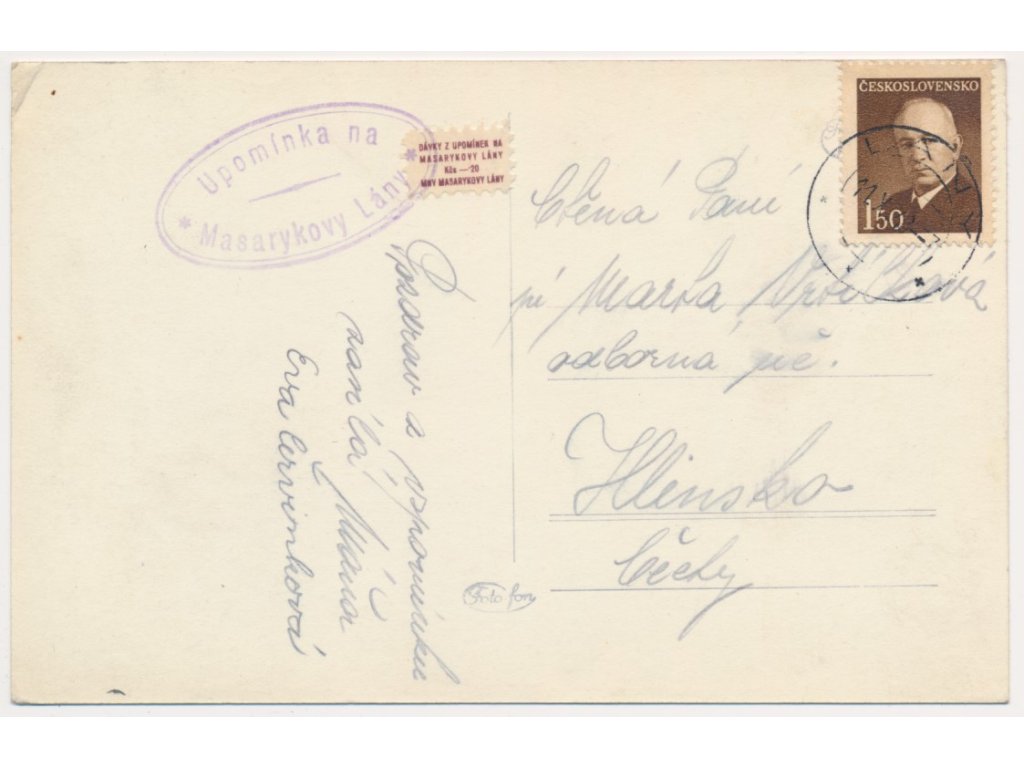 Upomínka na
* Masarykovy Lány *
DÁVKY Z UPOMÍNEK NA
MASARYKOVY LÁNY
Kčs —·20
MNV MASARYKOVY LÁNY
ČESKOSLOVENSKO
1 50
Ctěná Paní
pí Marta
odborná uč.
Hlinsko
Čechy
Pozdrav a vzpomínku
zasílá
Eva Červinková
Foto